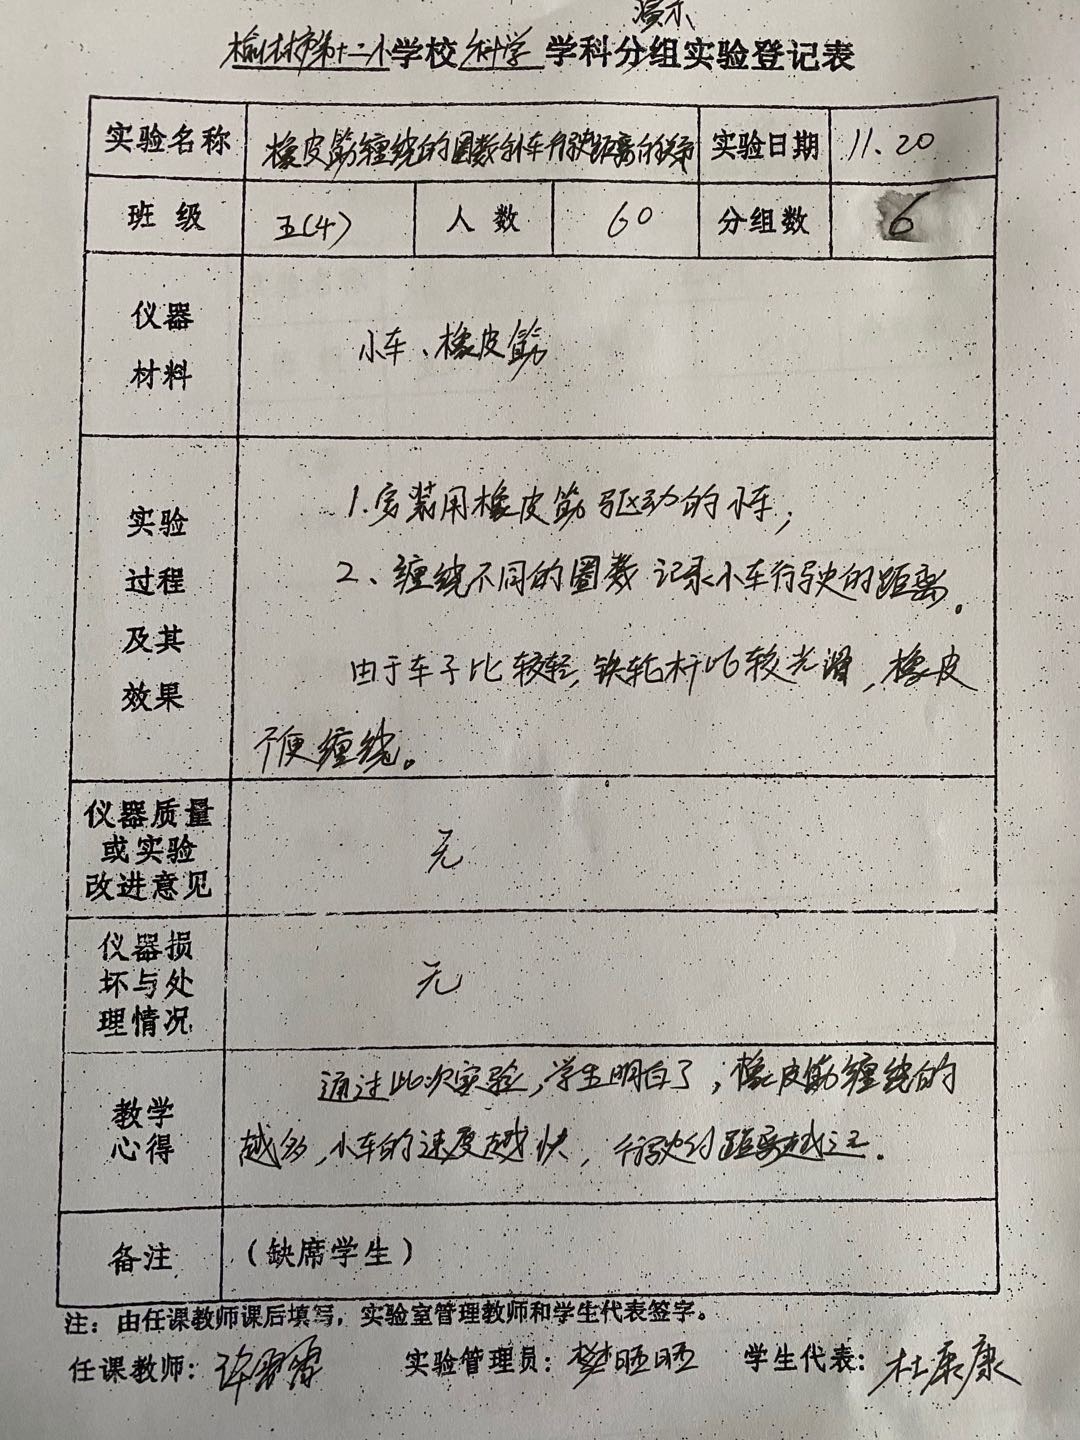 演示
榆林市第十二小学校科学学科分组实验登记表
实验名称 橡皮筋缠绕的圈数和小车行驶距离的关系 实验日期 11.20
班级 五(4) 人数 60 分组数 6
仪器
材料
小车、橡皮筋
实验
过程
及其
效果
1.安装用橡皮筋驱动的小车;
2、缠绕不同的圈数 记录小车行驶的距离。
由于车子比较轻,铁轮杆比较光滑,橡皮
不便缠绕。
仪器质量
或实验
改进意见
无
仪器损
坏与处
理情况
无
教学
心得
通过此次实验,学生明白了,橡皮筋缠绕的
越多,小车的速度越快,行驶的距离越远.
备注 (缺席学生)
注：由任课教师课后填写，实验室管理教师和学生代表签字。
任课教师：许 实验管理员：樊晒晒 学生代表：杜康康